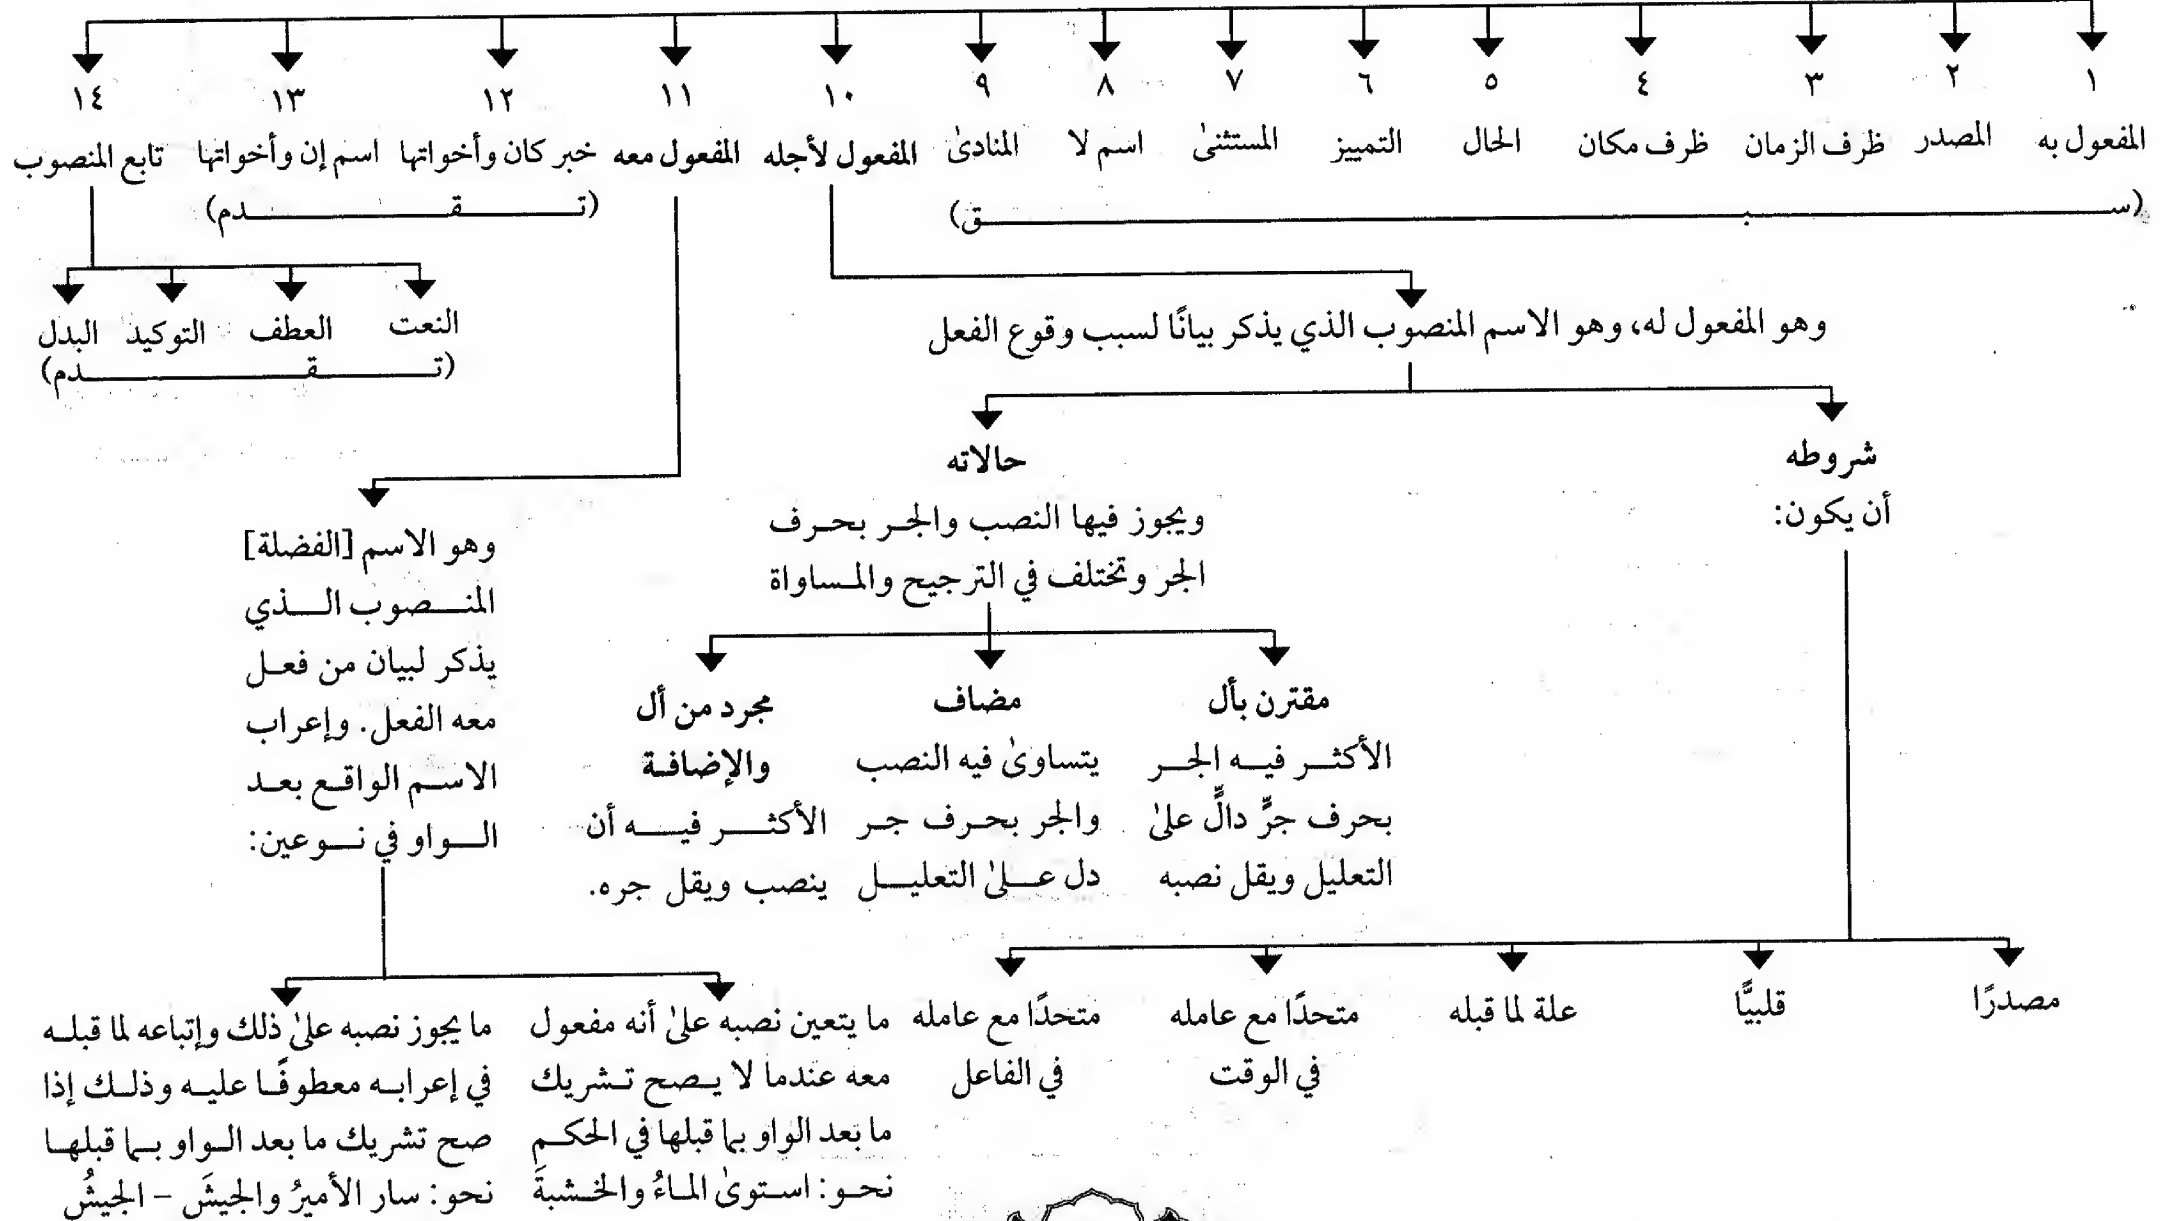 ١ ٢ ٣ ٤ ٥ ٦ ٧ ٨ ٩ ١٠ ١١ ١٢ ١٣ ١٤
المفعول به المصدر ظرف الزمان ظرف مكان الحال التمييز المستثنىٰ اسم لا المنادىٰ المفعول لأجله المفعول معه خبر كان وأخواتها اسم إن وأخواتها تابع المنصوب
(ســبــق)
(تــقــدم)
النعت العطف التوكيد البدل
(تــقــدم)
وهو المفعول له، وهو الاسم المنصوب الذي يذكر بيانًا لسبب وقوع الفعل
شروطه
أن يكون:
مصدرًا
قلبيًّا
علة لما قبله
متحدًا مع عامله
في الوقت
متحدًا مع عامله
في الفاعل
حالاته
ويجوز فيها النصب والجر بحرف
الجر وتختلف في الترجيح والمساواة
مقترن بأل
الأكثر فيه الجر
بحرف جرٍّ دالٍّ علىٰ
التعليل ويقل نصبه
مضاف
يتساوىٰ فيه النصب
والجر بحرف جر
دل علىٰ التعليل
مجرد من أل
والإضافة
الأكثر فيه أن
ينصب ويقل جره.
وهو الاسم [الفضلة]
المنصوب الذي
يذكر لبيان من فعل
معه الفعل. وإعراب
الاسم الواقع بعد
الواو في نوعين:
ما يتعين نصبه علىٰ أنه مفعول
معه عندما لا يصح تشريك
ما بعد الواو بما قبلها في الحكم
نحو: استوىٰ الماءُ والخشبةَ
ما يجوز نصبه علىٰ ذلك وإتباعه لما قبله
في إعرابه معطوفًا عليه وذلك إذا
صح تشريك ما بعد الواو بما قبلها
نحو: سار الأميرُ والجيشَ – الجيشُ